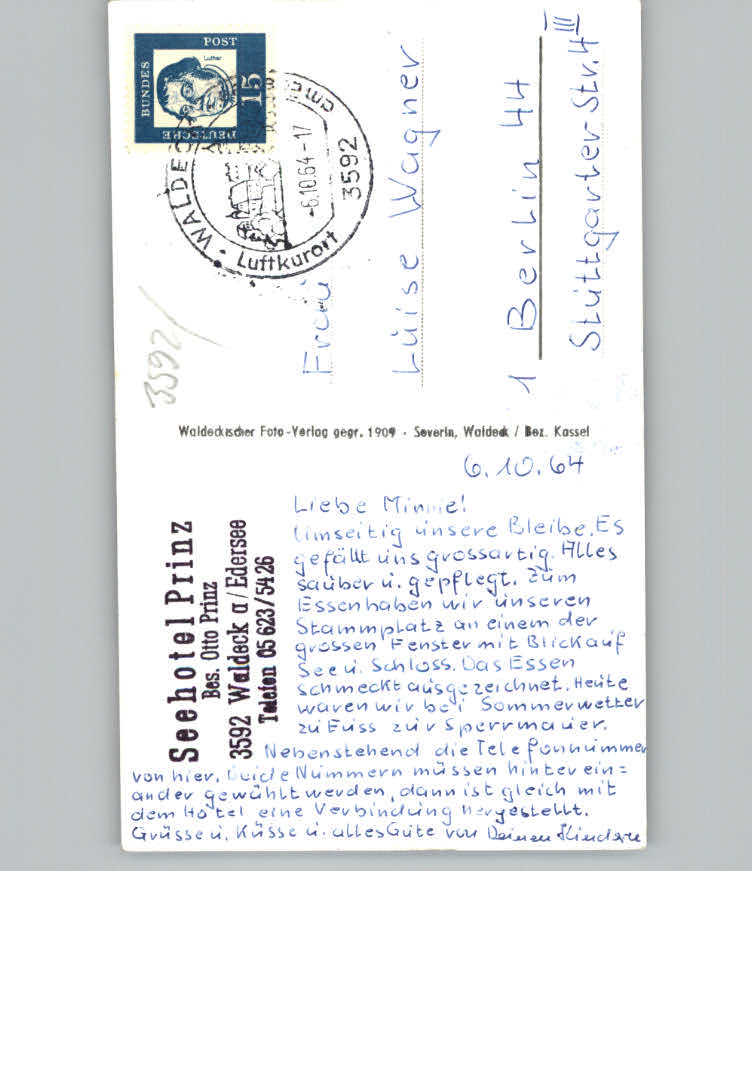 DEUTSCHE BUNDESPOST
Luther
15
WALDECK
-6.10.64-17
3592
Luftkurort
3592/
Frau
Luise Wagner
1 Berlin 44
Stuttgarter-Str. 4 III
Waldeckischer Foto-Verlag gegr. 1909 · Severin, Waldeck / Bez. Kassel
Seehotel Prinz
Bes. Otto Prinz
3592 Waldeck a/Edersee
Telefon 05 623/54 26
6.10.64
Liebe Minnie!
Umseitig unsere Bleibe. Es
gefällt uns grossartig. Alles
sauber u. gepflegt. Zum
Essen haben wir unseren
Stammplatz an einem der
grossen Fenster mit Blick auf
See u. Schloss. Das Essen
schmeckt ausgezeichnet. Heute
waren wir bei Sommerwetter
zu Fuss zur Sperrmauer.
Nebenstehend die Telefonnummer
von hier, beide Nummern müssen hinterein=
ander gewählt werden, dann ist gleich mit
dem Hotel eine Verbindung hergestellt.
Grüsse u. Küsse u. alles Gute von Deinen Kindern